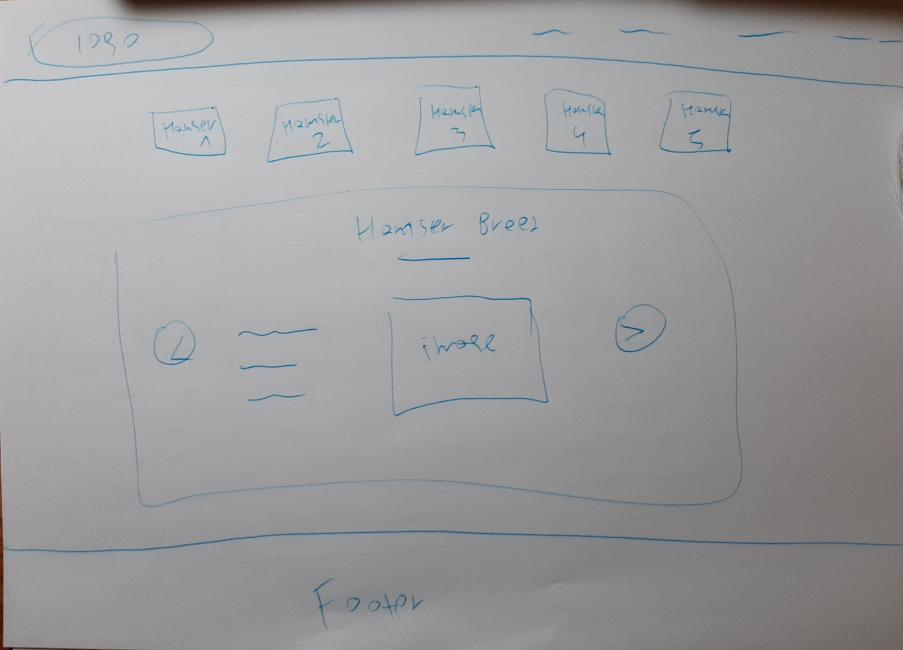 logo
Hamser 1
Hamster 2
Hamster 3
Hamste 4
Hamse 5
Hamser Breed
<
image
>
Footer